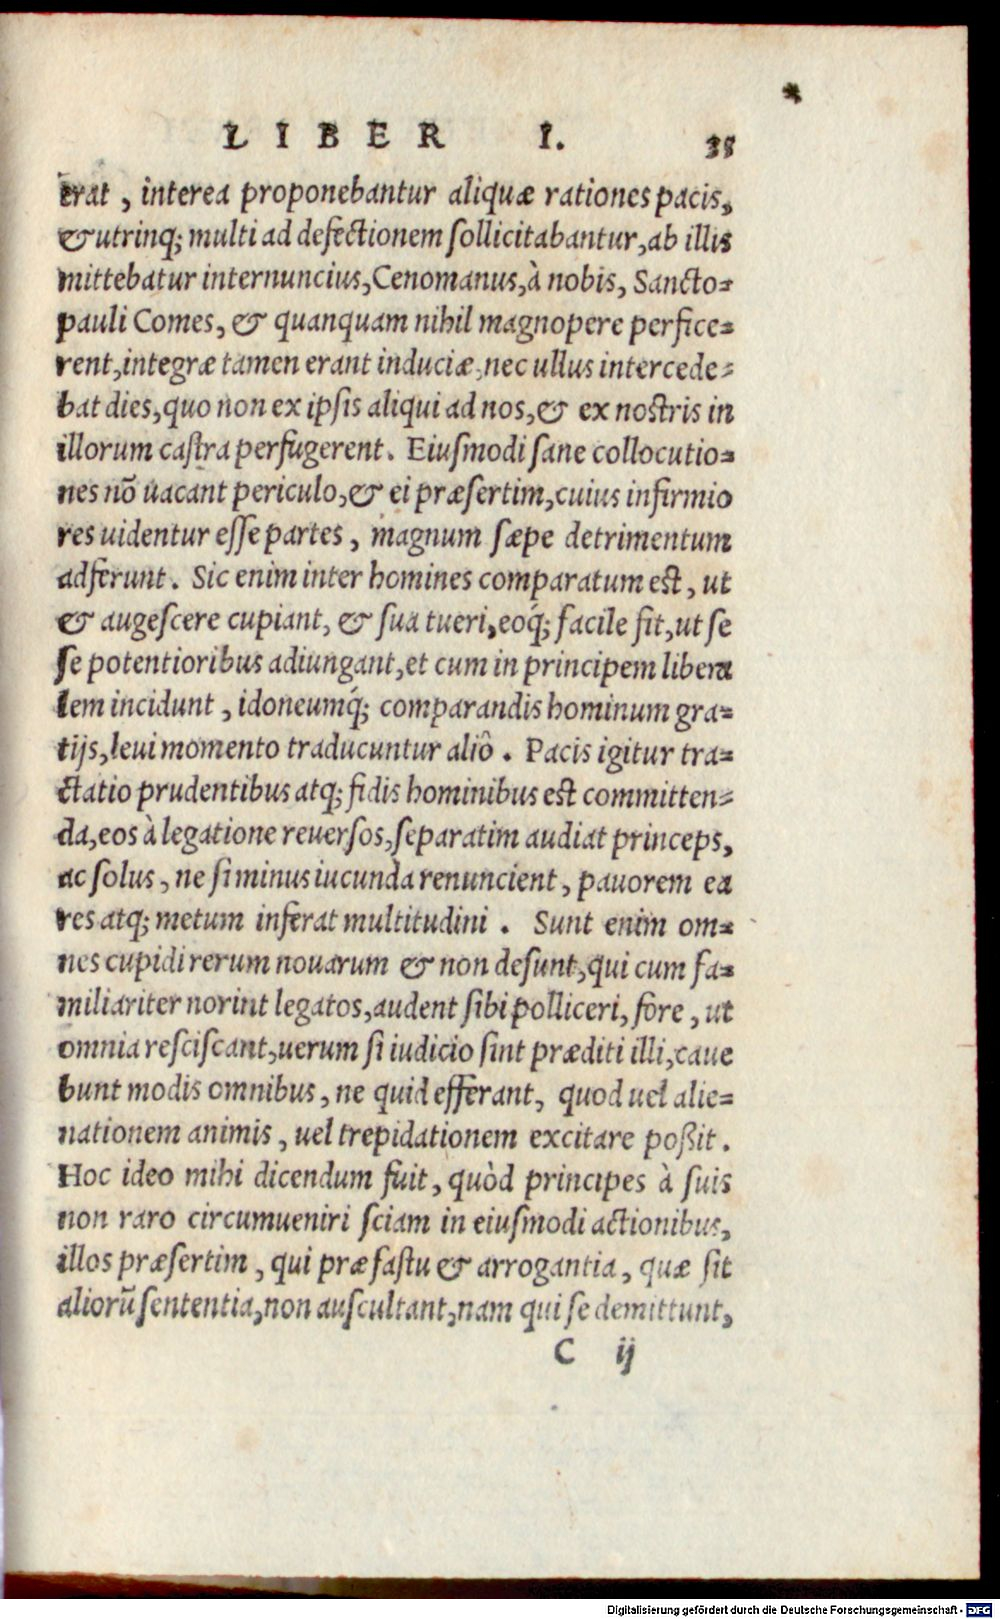 *
LIBER I. 35
erat, interea proponebantur aliquæ rationes pacis,
& utrinq; multi ad defectionem sollicitabantur, ab illis
mittebatur internuncius, Cenomanus, à nobis, Sancto=
pauli Comes, & quanquam nihil magnopere perfice=
rent, integræ tamen erant induciæ, nec ullus intercede=
bat dies, quo non ex ipsis aliqui ad nos, & ex nostris in
illorum castra perfugerent. Eiusmodi sane collocutio=
nes nō uacant periculo, & ei præsertim, cuius infirmio
res uidentur esse partes, magnum sæpe detrimentum
adferunt. Sic enim inter homines comparatum est, ut
& augescere cupiant, & sua tueri, eoq́; facile fit, ut se
se potentioribus adiungant, et cum in principem libera
lem incidunt, idoneumq́; comparandis hominum gra=
tijs, leui momento traducuntur aliô. Pacis igitur tra=
ctatio prudentibus atq; fidis hominibus est committen=
da, eos à legatione reuersos, separatim audiat princeps,
ac solus, ne si minus iucunda renuncient, pauorem ea
res atq; metum inferat multitudini. Sunt enim om=
nes cupidi rerum nouarum & non desunt, qui cum fa=
miliariter norint legatos, audent sibi polliceri, fore, ut
omnia resciscant, uerum si iudicio sint præditi illi, caue
bunt modis omnibus, ne quid efferant, quod uel alie=
nationem animis, uel trepidationem excitare poßit.
Hoc ideo mihi dicendum fuit, quòd principes à suis
non raro circumueniri sciam in eiusmodi actionibus,
illos præsertim, qui præ fastu & arrogantia, quæ sit
aliorū sententia, non auscultant, nam qui se demittunt,
C ij
Digitalisierung gefördert durch die Deutsche Forschungsgemeinschaft - DFG